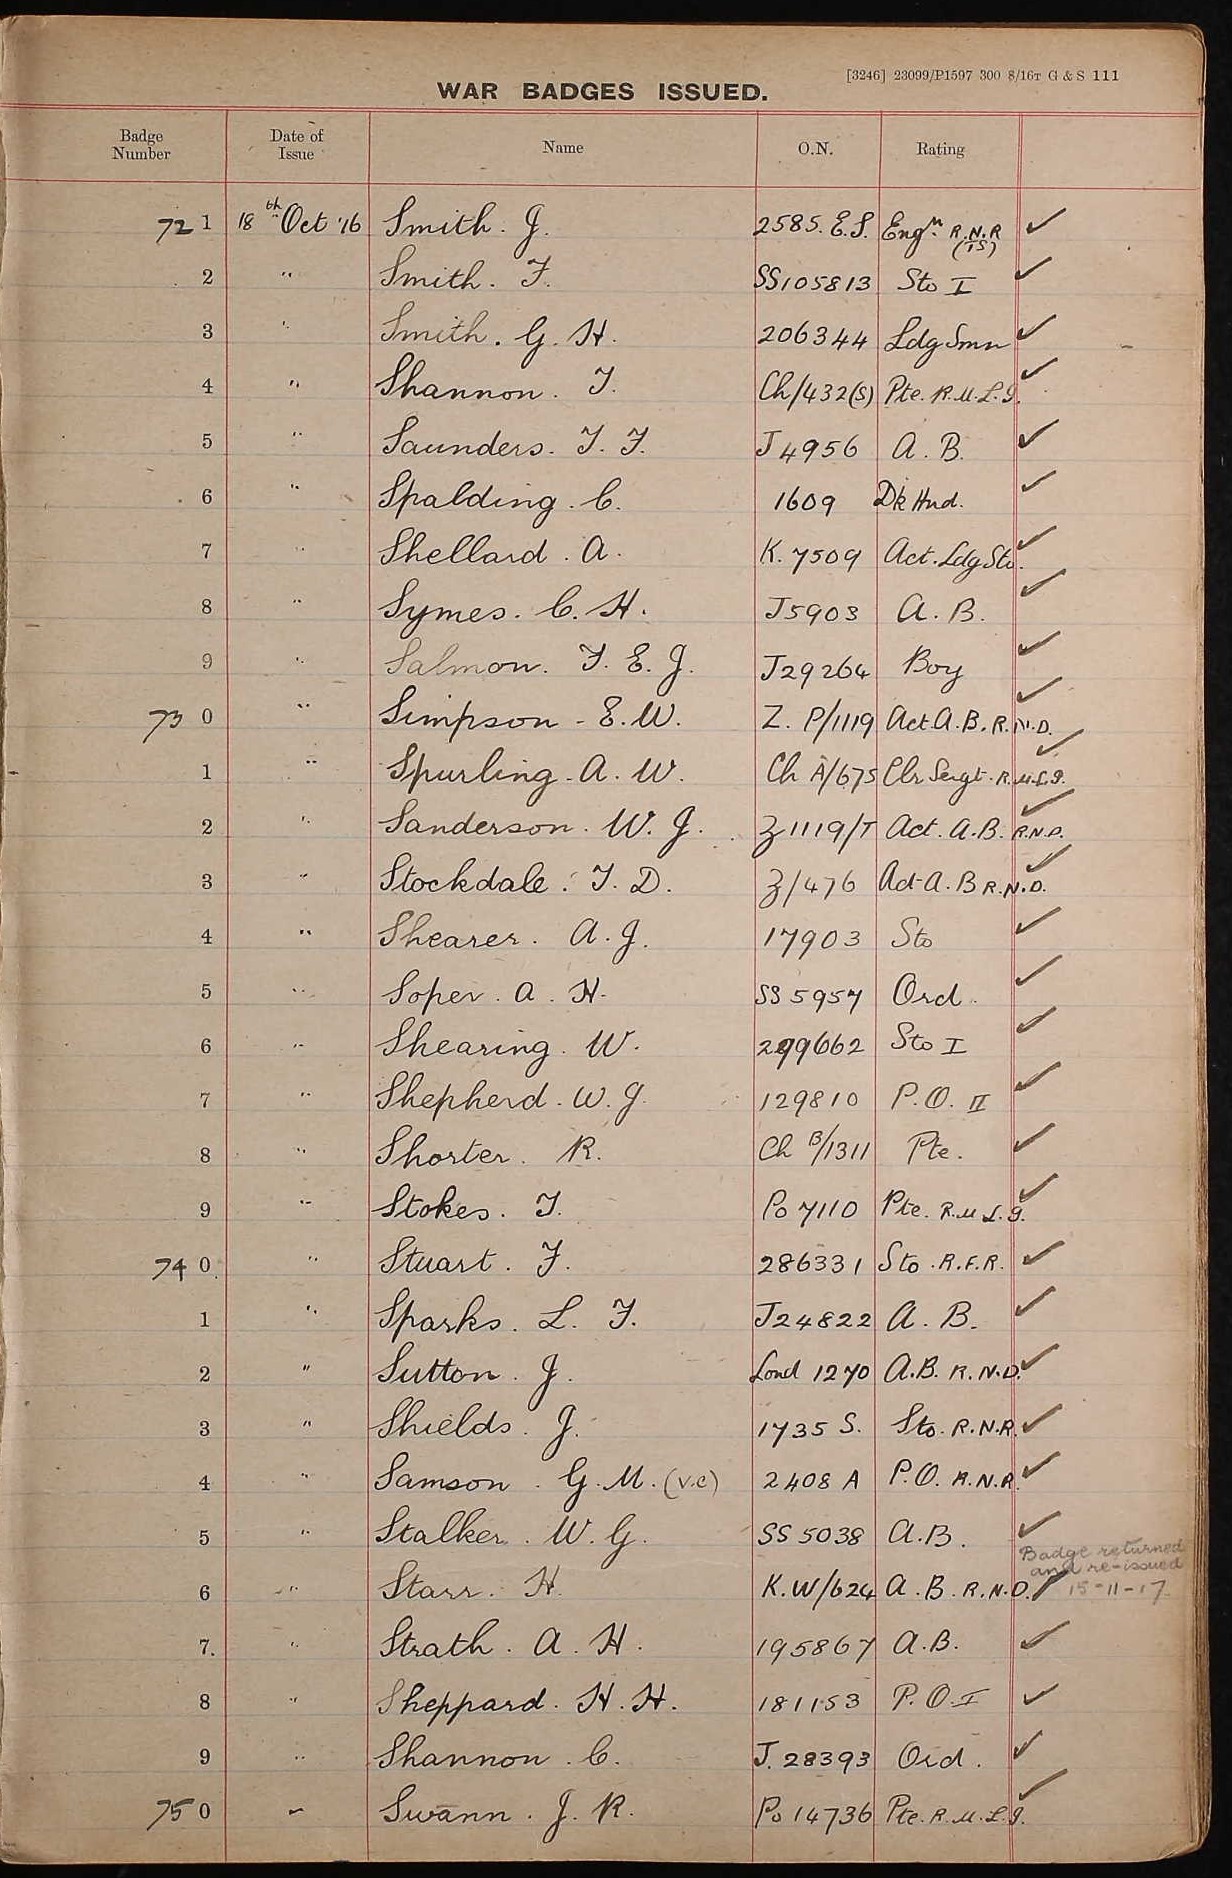 [3246] 23099/P1597 300 8/16T G & S 111
WAR BADGES ISSUED.
Badge Number Date of Issue Name O.N. Rating
721 18th Oct '16 Smith. J. 2585. E.S. Engn. R.N.R (TS) ✓
2 " Smith. F. SS105813 Sto I ✓
3 " Smith. G. H. 206344 Ldg Smn ✓
4 " Shannon. T. Ch/432(S) Pte. R.M.L.I. ✓
5 " Saunders. T. F. J4956 A.B. ✓
6 " Spalding. C. 1609 Dk Hnd. ✓
7 " Shellard. A. K. 7509 Act. Ldg Sto. ✓
8 " Symes. C. H. J5903 A.B. ✓
9 " Salmon. F. E. J. J29264 Boy ✓
730 " Simpson - E. W. Z. P/1119 Act. A.B. R.N.D. ✓
1 " Spurling - A. W. Ch A/675 Clr Sergt. R.M.L.I. ✓
2 " Sanderson. W. J. Z1119/T Act. A.B. R.N.D. ✓
3 " Stockdale. T. D. Z/476 Act A.B R.N.D. ✓
4 " Shearer. A. J. 17903 Sto ✓
5 " Soper. A. H. SS 5957 Ord. ✓
6 " Shearing. W. 299662 Sto I ✓
7 " Shepherd. W. J. 129810 P.O. II ✓
8 " Shorter. R. Ch B/1311 Pte. ✓
9 " Stokes. T. Po 7110 Pte. R.M.L.I. ✓
740 " Stuart. F. 286331 Sto. R.F.R. ✓
1 " Sparks. L. F. J24822 A.B. ✓
2 " Sutton. J. Lond 1270 A.B. R.N.D. ✓
3 " Shields. J. 1735 S. Sto. R.N.R. ✓
4 " Samson. G. M. (V.C) 2408 A P.O. R.N.R. ✓
5 " Stalker. W. G. SS 5038 A.B. ✓
Badge returned and re-issued 15-11-17
6 " Starr. H. K.W/624 A.B. R.N.D. ✓
7. " Strath. A. H. 195867 A.B. ✓
8 " Sheppard. H. H. 181153 P.O. I ✓
9 " Shannon. C. J. 28393 Ord. ✓
750 " Swann. J. R. Po 14736 Pte. R.M.L.I. ✓